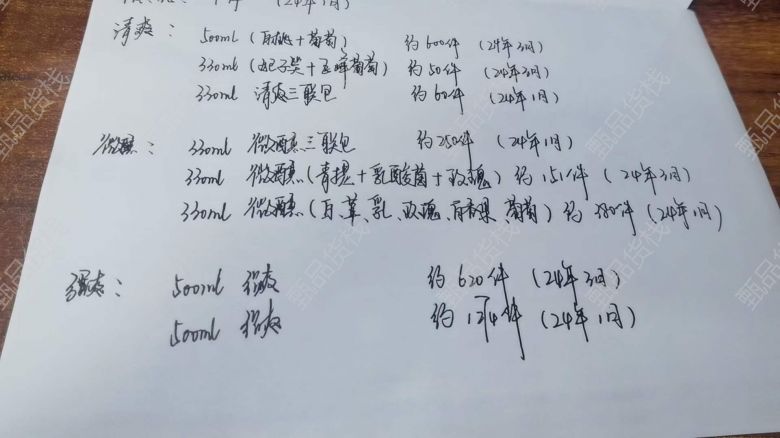 (24年1月)
清爽： 500ml (白桃+葡萄) 约600件 (24年3月)
330ml (妃子笑+玉峰葡萄) 约50件 (24年3月)
330ml 清爽三联包 约60件 (24年1月)
微醺： 330ml 微醺三联包 约250件 (24年1月)
330ml 微醺(青提+乳酸菌+玫瑰) 约151件 (24年3月)
330ml 微醺(白、草、乳、玫瑰、百香果、葡萄) 约380件 (24年1月)
强爽： 500ml 强爽 约620件 (24年3月)
500ml 强爽 约124件 (24年1月)
甄品货栈